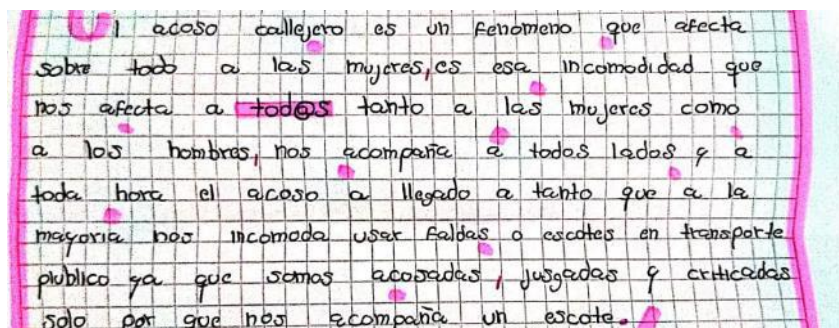 El acoso callejero es un fenomeno que afecta
sobre todo a las mujeres, es esa incomodidad que
nos afecta a tod@s tanto a las mujeres como
a los hombres, nos acompaña a todos lados y a
toda hora el acoso a llegado a tanto que a la
mayoria nos incomoda usar faldas o escotes en transporte
plublico ya que somos acosadas, jusgadas y criticadas
solo por que nos acompaña un escote.